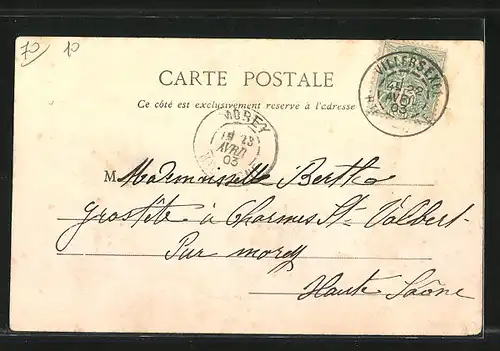 70 10
CARTE POSTALE
Ce côté est exclusivement réservé à l'adresse
VILLERSEXEL
22
AVRIL
03
MOREY
23
AVRIL
03
Mademoiselle Berthe
Grostête à Charmes St Valbert
Par morey
Haute Saône